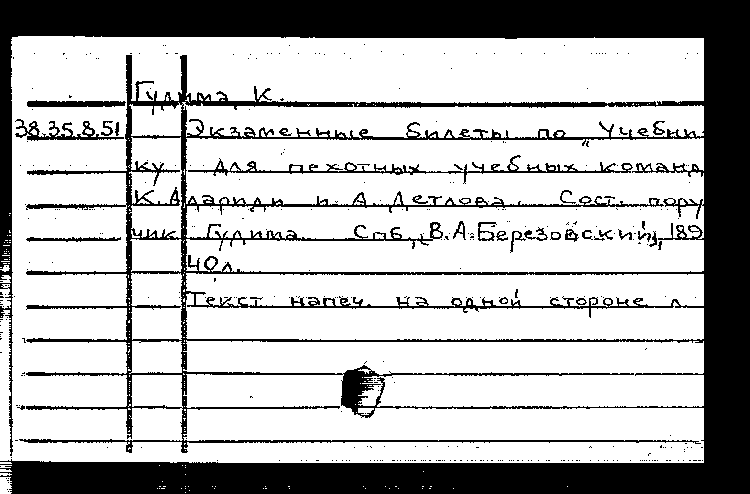 Гудима, К.
38.35.8.51 Экзаменные билеты по „Учебни-
ку для пехотных учебных команд
К. Адариди и А. Детлова. Сост. пору-
чик Гудима. Спб, „В.А.Березовский", 189
40 л.
Текст напеч. на одной стороне л.